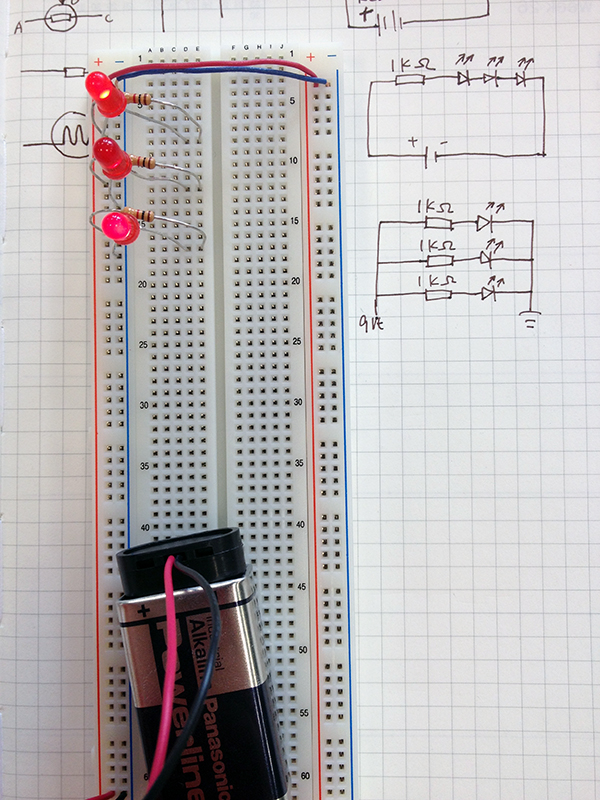 A C
+
+ − 1 A B C D E F G H I J 1 + −
5 5
10 10
15 15
20 20
25 25
30 30
35 35
40 40
45
50
55
60
1KΩ
+ −
1KΩ
1KΩ
1KΩ
+
Industrial
Alkaline
Powerline
Panasonic